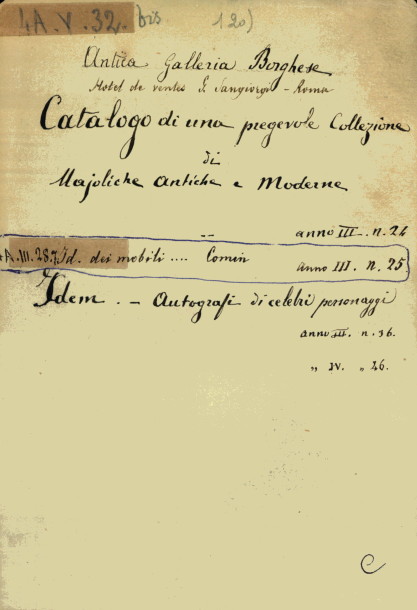 4A.V.32.bis 120)
Antica Galleria Borghese
Hotel de ventes G. Sangiorgi - Roma
Catalogo di una pregevole Collezione
di
Majoliche Antiche e Moderne
-- anno III. n. 24
4A.III.28.7 Id. dei mobili .... Comin anno III. n. 25
Idem. - Autografi di celebri personaggi
anno III. n. 36.
„ IV. „ 46.
C